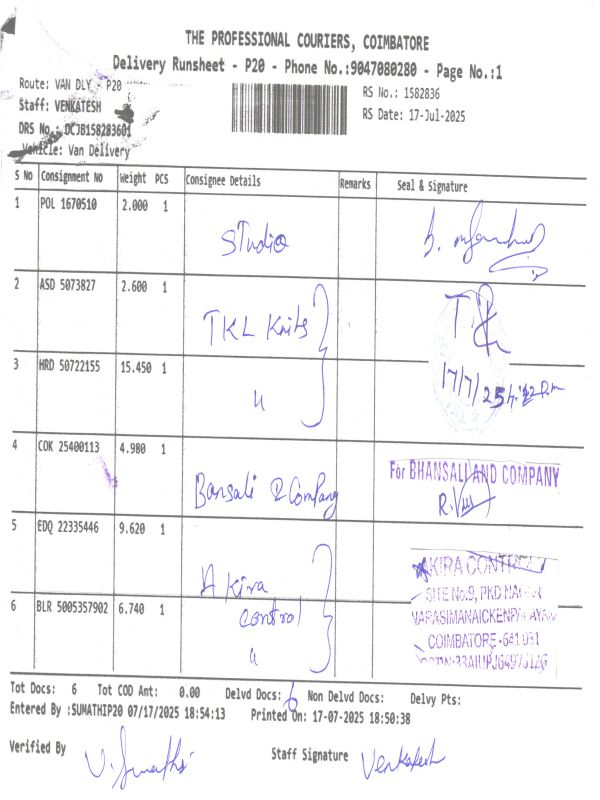 THE PROFESSIONAL COURIERS, COIMBATORE
Delivery Runsheet - P20 - Phone No.:9047080280 - Page No.:1
Route: VAN DLY - P20
RS No.: 1582836
Staff: VENKATESH
RS Date: 17-Jul-2025
DRS No.: DCJB158283601
Vehicle: Van Delivery
S No Consignment No Weight PCS Consignee Details Remarks Seal & Signature
1 POL 1670510 2.000 1
Studio
2 ASD 5073827 2.600 1
TKL Knits
T.
3 HRD 50722155 15.450 1
17/7/25
"
4 COK 25400113 4.980 1
For BHANSALI AND COMPANY
Bansali & Company
5 EDQ 22335446 9.620 1
AKIRA CONTROL
A kira
SITE No.9, PKD
6 BLR 5005357902 6.740 1
control
COIMBATORE - 641 031
"
Tot Docs: 6 Tot COD Amt: 0.00 Delvd Docs: 6 Non Delvd Docs: Delvy Pts:
Entered By :SUMATHIP20 07/17/2025 18:54:13 Printed On: 17-07-2025 18:50:38
Verified By V. Sumathi Staff Signature Venkatesh